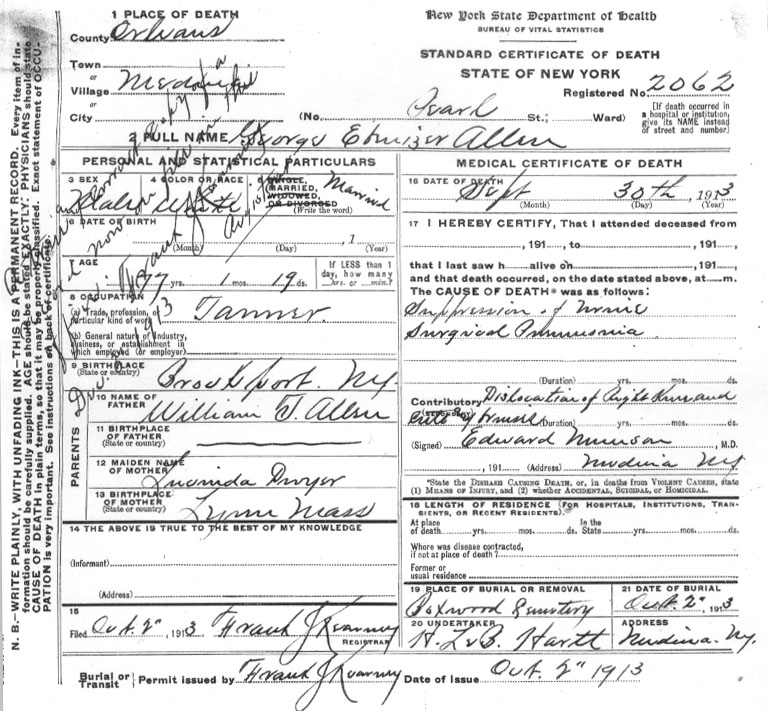 New York State Department of Health
BUREAU OF VITAL STATISTICS
STANDARD CERTIFICATE OF DEATH
STATE OF NEW YORK
Registered No. 2062
[If death occurred in a hospital or institution, give its NAME instead of street and number]
1 PLACE OF DEATH
County Orleans
Town
or
Village Medina
or
City (No. Pearl St.; Ward)
2 FULL NAME George Ebenizer Allen
PERSONAL AND STATISTICAL PARTICULARS
3 SEX Male
4 COLOR OR RACE White
5 SINGLE, MARRIED, WIDOWED, OR DIVORCED (Write the word) Married
6 DATE OF BIRTH
(Month) (Day) , 1 (Year)
7 AGE
77 yrs. 1 mos. 19 ds.
If LESS than 1 day, how many hrs. or min.?
8 OCCUPATION
(a) Trade, profession, or particular kind of work Tanner
(b) General nature of industry, business, or establishment in which employed (or employer)
9 BIRTHPLACE
(State or country) Brockport. Ny.
PARENTS
10 NAME OF FATHER William T. Allen
11 BIRTHPLACE OF FATHER
(State or country)
12 MAIDEN NAME OF MOTHER Lucinda Dwyer
13 BIRTHPLACE OF MOTHER
(State or country) Lynn Mass
14 THE ABOVE IS TRUE TO THE BEST OF MY KNOWLEDGE
(Informant)
(Address)
15
Filed Oct. 2", 1913 Frank J Kearney
REGISTRAR
MEDICAL CERTIFICATE OF DEATH
16 DATE OF DEATH Sept 30th, 1913
(Month) (Day) (Year)
17 I HEREBY CERTIFY, That I attended deceased from
, 191 , to , 191 ,
that I last saw h alive on , 191 ,
and that death occurred, on the date stated above, at m.
The CAUSE OF DEATH* was as follows:
Suppression of Urine
Surgical Pneumonia
(Duration) yrs. mos. ds.
Contributory Dislocation of Right Knee and
(Duration) yrs. mos. ds.
(Signed) Edward Munson, M.D.
, 191 (Address) Medina Ny
*State the DISEASE CAUSING DEATH, or, in deaths from VIOLENT CAUSES, state (1) MEANS OF INJURY, and (2) whether ACCIDENTAL, SUICIDAL, OR HOMICIDAL.
18 LENGTH OF RESIDENCE (FOR HOSPITALS, INSTITUTIONS, TRANSIENTS, OR RECENT RESIDENTS).
At place of death yrs. mos. ds. In the State yrs. mos. ds.
Where was disease contracted, if not at place of death?
Former or usual residence
19 PLACE OF BURIAL OR REMOVAL
Boxwood Cemetery
21 DATE OF BURIAL
Oct. 2", 1913
20 UNDERTAKER
H. L. B. Hartt
ADDRESS
Medina. Ny.
Burial or Transit } Permit issued by Frank J Kearney Date of Issue Oct. 2" 1913
N. B.—WRITE PLAINLY, WITH UNFADING INK—THIS IS A PERMANENT RECORD. Every item of information should be carefully supplied. AGE should be stated EXACTLY. PHYSICIANS should state CAUSE OF DEATH in plain terms, so that it may be properly classified. Exact statement of OCCUPATION is very important. See instructions on back of certificate.